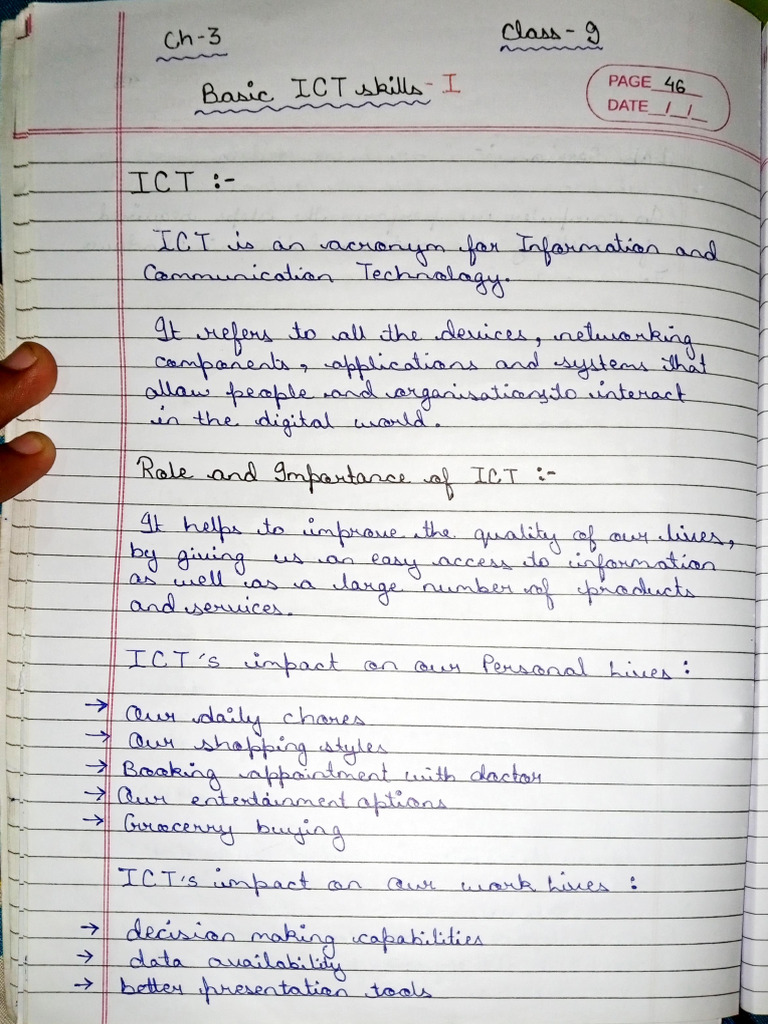 Ch-3
Class-9
Basic ICT skills-I
PAGE 46
DATE _/_/_
ICT :-
ICT is an acronym for Information and
Communication Technology.
It refers to all the devices, networking
components, applications and systems that
allow people and organisations to interact
in the digital world.
Role and Importance of ICT :-
It helps to improve the quality of our lives,
by giving us an easy access to information
as well as a large number of products
and services.
ICT's impact on our Personal Lives :
→ Our daily chores
→ Our shopping styles
→ Booking appointment with doctor
→ Our entertainment options
→ Grocerry buying
ICT's impact on our work Lives :
→ decision making capabilities
→ data availability
→ better presentation tools